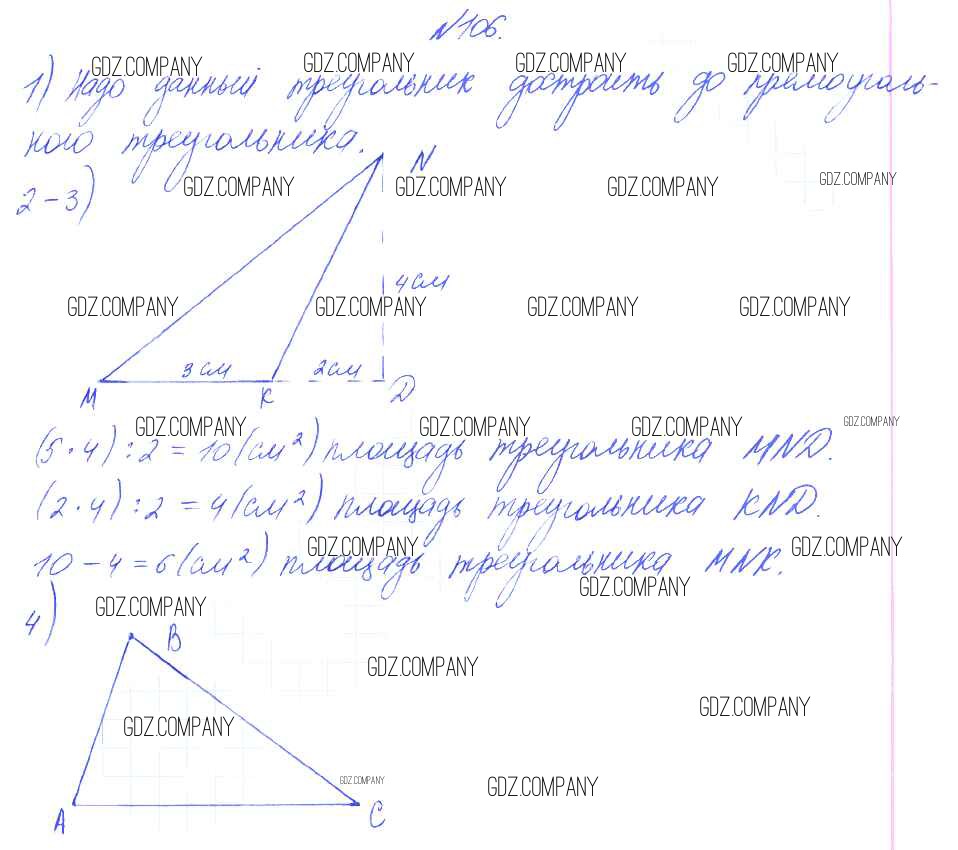 №106.
1) Надо данный треугольник достроить до прямоуголь-
ного треугольника.
2-3)
N
4 см
3 см 2 см
M K D
(5·4):2=10(см²) площадь треугольника MND.
(2·4):2=4(см²) площадь треугольника KND.
10-4=6(см²) площадь треугольника MNK.
4)
B
A C
GDZ.COMPANY GDZ.COMPANY GDZ.COMPANY GDZ.COMPANY
GDZ.COMPANY GDZ.COMPANY GDZ.COMPANY GDZ.COMPANY
GDZ.COMPANY GDZ.COMPANY GDZ.COMPANY GDZ.COMPANY
GDZ.COMPANY GDZ.COMPANY GDZ.COMPANY GDZ.COMPANY
GDZ.COMPANY GDZ.COMPANY
GDZ.COMPANY
GDZ.COMPANY
GDZ.COMPANY
GDZ.COMPANY
GDZ.COMPANY
GDZ.COMPANY
GDZ.COMPANY